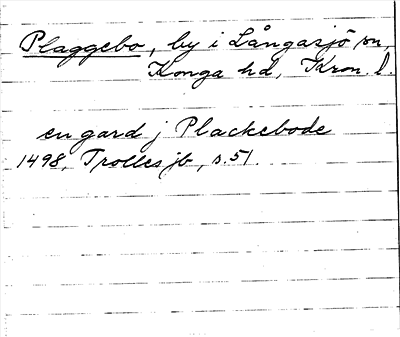 Plaggebo, by i Långasjö sn,
Konga hd, Kron. l.
en gard j Plackebode
1498, Trolles jb, s. 51.